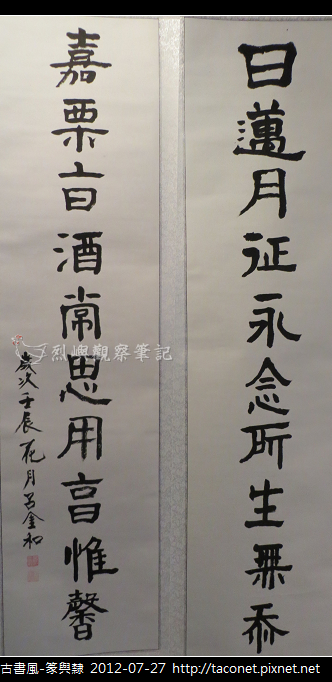 日邁月征永念所生無忝
嘉栗旨酒常思用亯惟馨
歲次壬辰花月呂金和
烈嶼觀察筆記
古書風-篆與隸 2012-07-27 http://taconet.pixnet.net